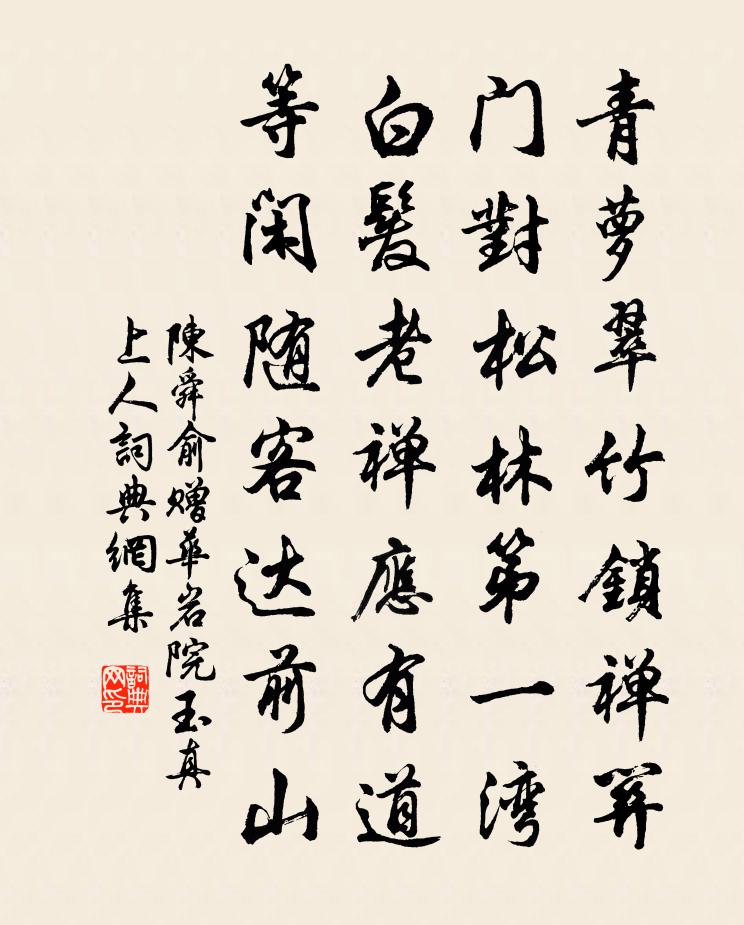 青萝翠竹鎖禅関
门對松林第一湾
白髮老禅應有道
等閑随客达前山
陳舜俞赠華岩院玉真
上人詞典網集
詞典
网印